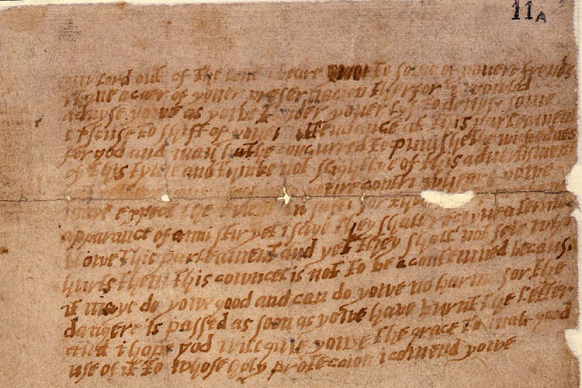 11A
lord out of the love i beare to some of youere frends
i have a caer of youer preseruacion therfor i would
advyse yowe as yowe tender youer lyf to devyse some
excuse to shift of youer attendance at this parleament
for god and man hathe concurred to punishe the wickednes
of this tyme and thinke not slightlye of this advertisment
youre contri wheare yowe
maye expect the event in safti for
apparance of anni stir yet i saye they shall receyve a terrible
blowe this parleament and yet they shall not seie who
hurts them this cowncel is not to be contemned because
it maye do yowe good and can do yowe no harme for the
dangere is passed as soon as yowe have burnt the letter
and i hope god will give yowe the grace to mak good
use of it to whose holy proteccion i comend yowe